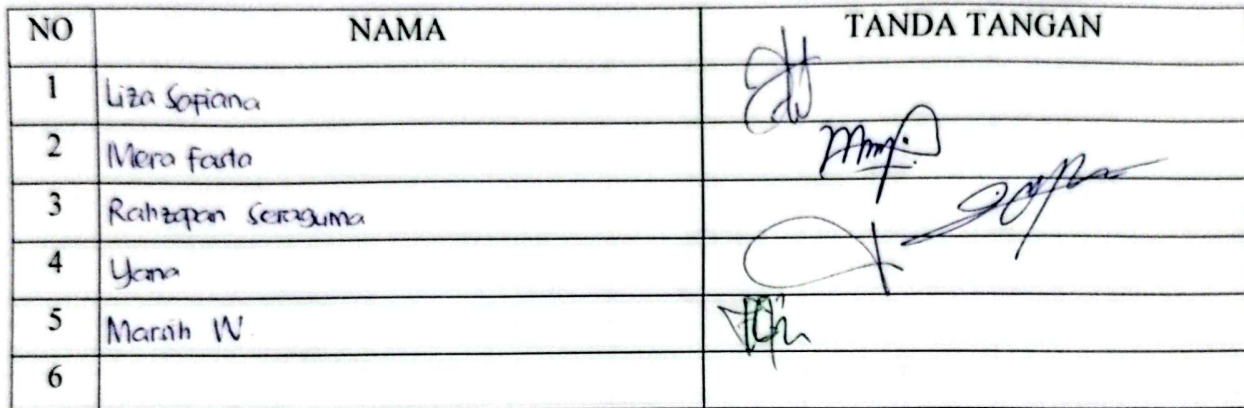 NO NAMA TANDA TANGAN
1 Liza Sopiana
2 Mera fasta
3 Rahzopan Seraguma
4 Yana
5 Marsih W.
6